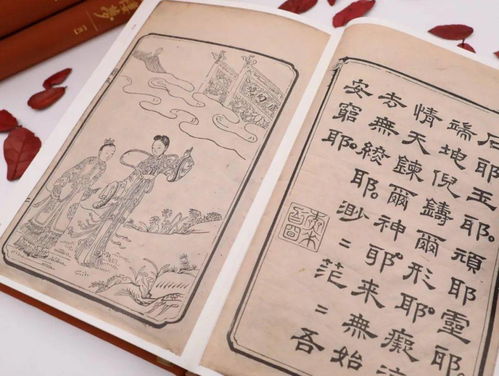 石耶玉耶頑耶靈
端坤倪鑄爾形耶癡
情天鍊爾神耶來無始
去無終耶渺〻茫〻吾
安窮耶